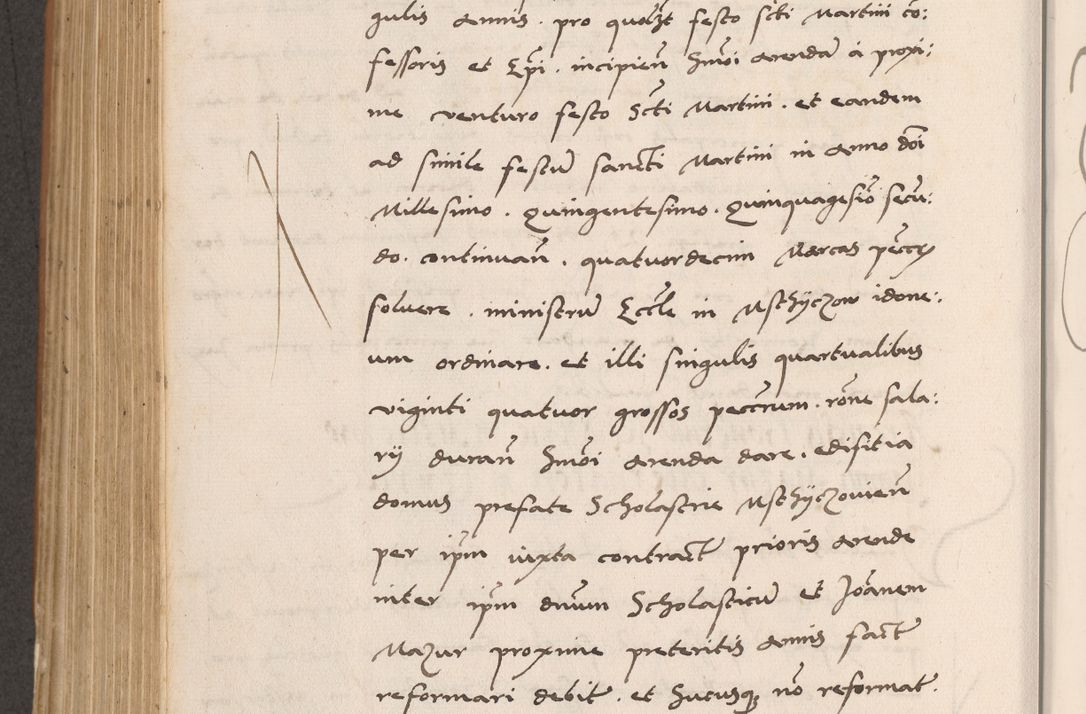 gulis annis . pro quolꝫt festo scti Martini co:
fessoris et Epi . incipien̄ hm̄oi arenda a proxi:
me venturo festo Scti Martini . et eandem
ad simile festū sancti Martini in anno dn̄i
Millesimo . Quingentesimo . Quinquagesiō secū:
do . continuan̄ . quatuordecim Marcas pecc̄
soluere . ministrū Eccl̄e in Msthyczow idone:
um ordinare . et illi singulis quartualibus
viginti quatuor grossos pecc̄rum . rōne sala:
rij duran̄ hm̄oi arenda dare . edifitia
domus prefate Scholastrie Msthyczouien̄
per ip̄m iuxta contract̄ prioris arende
inter ip̄m dn̄um Scholasticū et Joānem
Mazur proxime preteritis annis fact̄
reformari debit̄ . et hucusqꝫ nō reformat̄ .